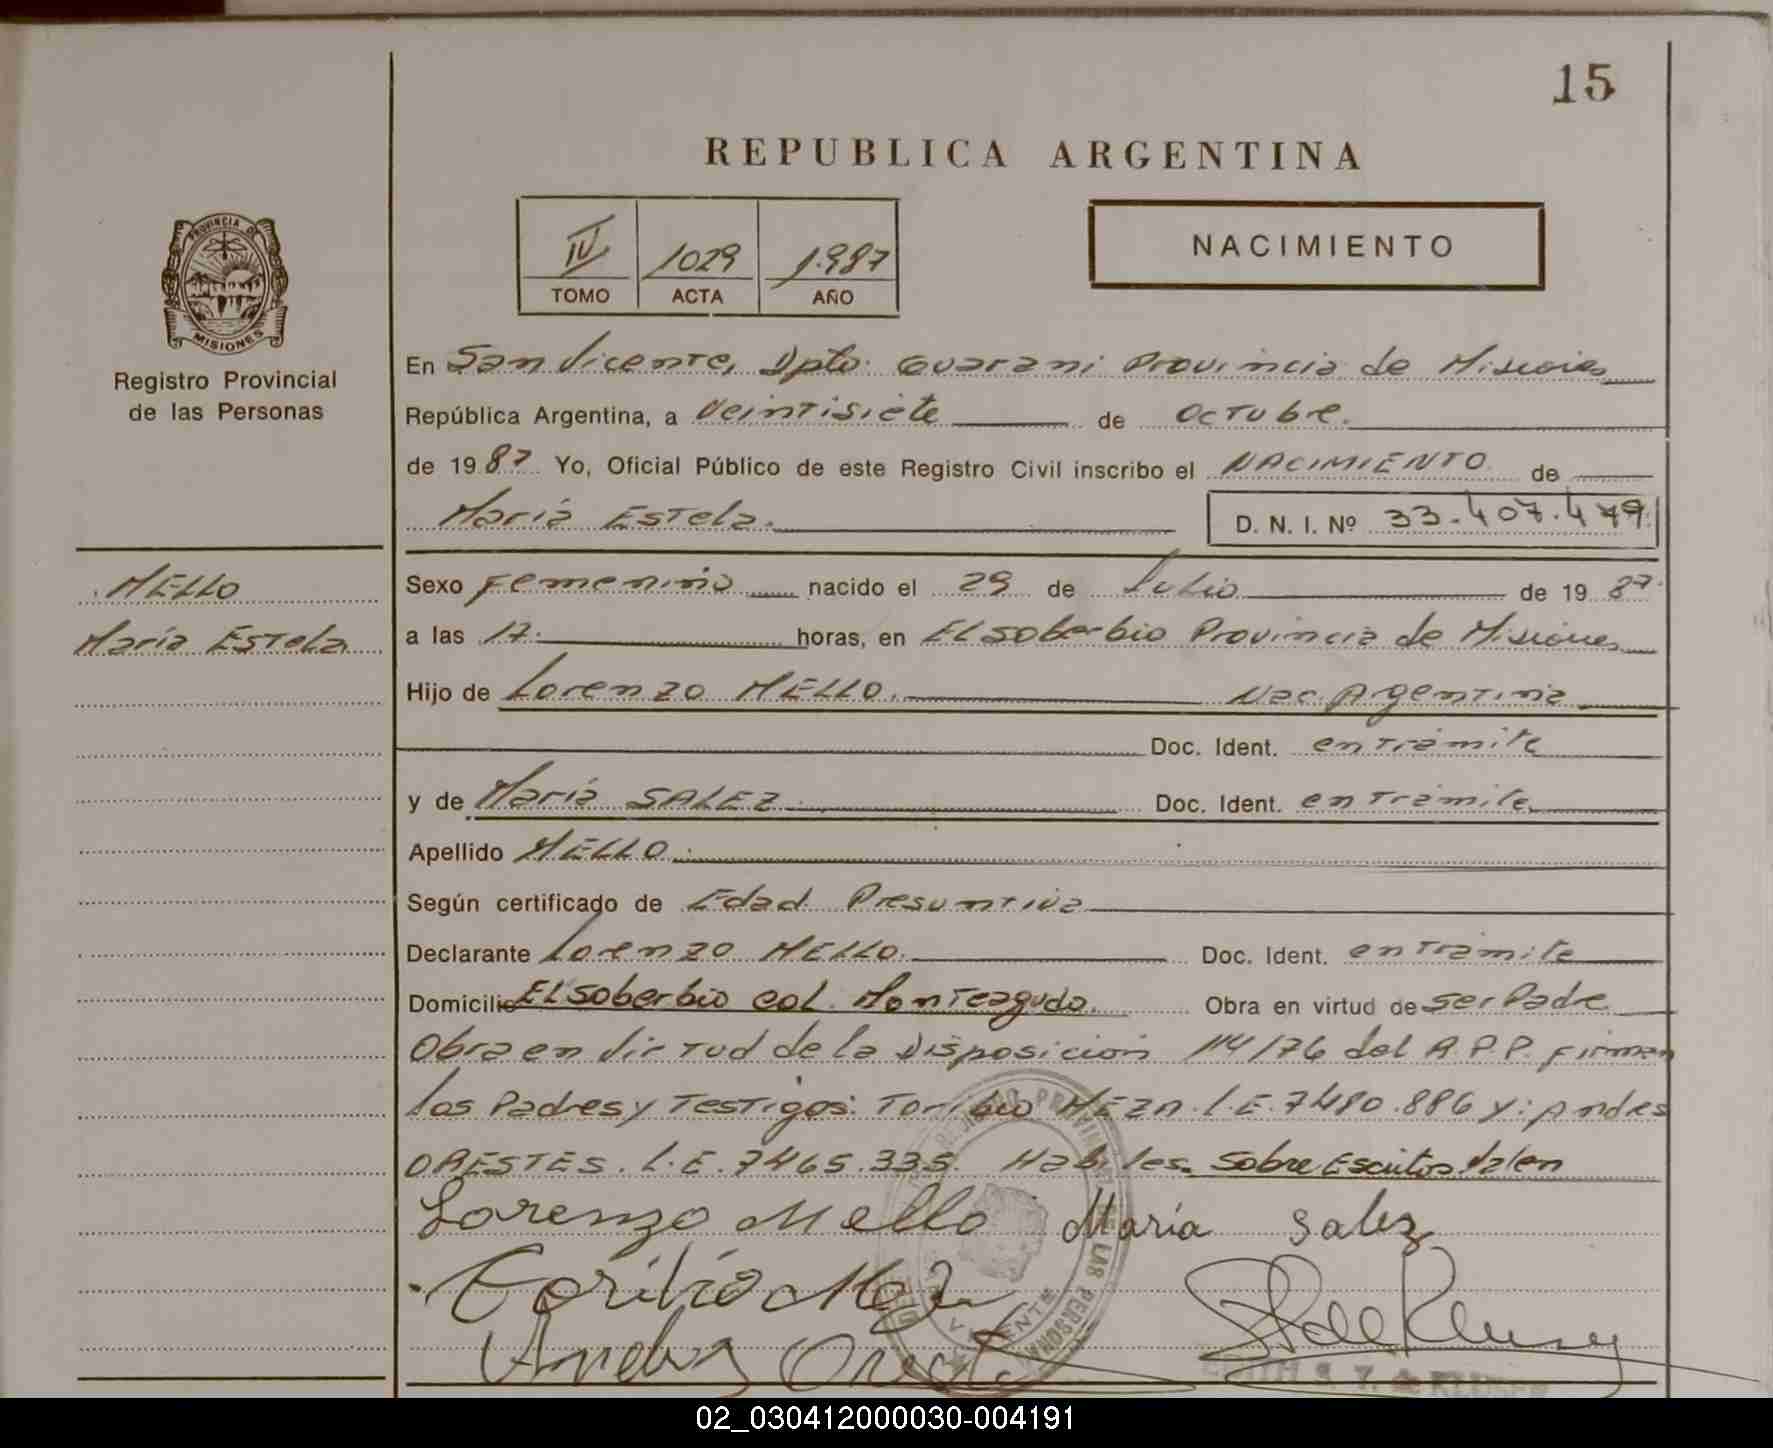 15
REPUBLICA ARGENTINA
IV 1029 1.987
TOMO ACTA AÑO
NACIMIENTO
PROVINCIA DE
MISIONES
Registro Provincial
de las Personas
En San Vicente, Dpto. Guarani Provincia de Misiones
República Argentina, a Veintisiete de Octubre.
de 1987 Yo, Oficial Público de este Registro Civil inscribo el NACIMIENTO de
María Estela.
D. N. I. Nº 33.407.479
MELLO
María Estela
Sexo Femenino nacido el 29 de Julio de 1987
a las 17. horas, en El Soberbio Provincia de Misiones
Hijo de Lorenzo MELLO. Nac. Argentina
Doc. Ident. en trámite
y de María SALEZ Doc. Ident. en trámite
Apellido MELLO.
Según certificado de Edad Presuntiva
Declarante Lorenzo MELLO. Doc. Ident. en trámite
Domicilio El Soberbio Col. Monteagudo. Obra en virtud de Ser Padre
Obra en Virtud de la Disposición 114/76 del A.P.P. firman
los Padres y Testigos: Toribio MEZA. L.E. 7480.886 y: Andres
ORESTES. L.E. 7465.335. Habiles. Sobre Escritos Valen
Lorenzo Mello María Salez
Toribio
Andres
EDITH S. T. de KLUSEN
02_030412000030-004191